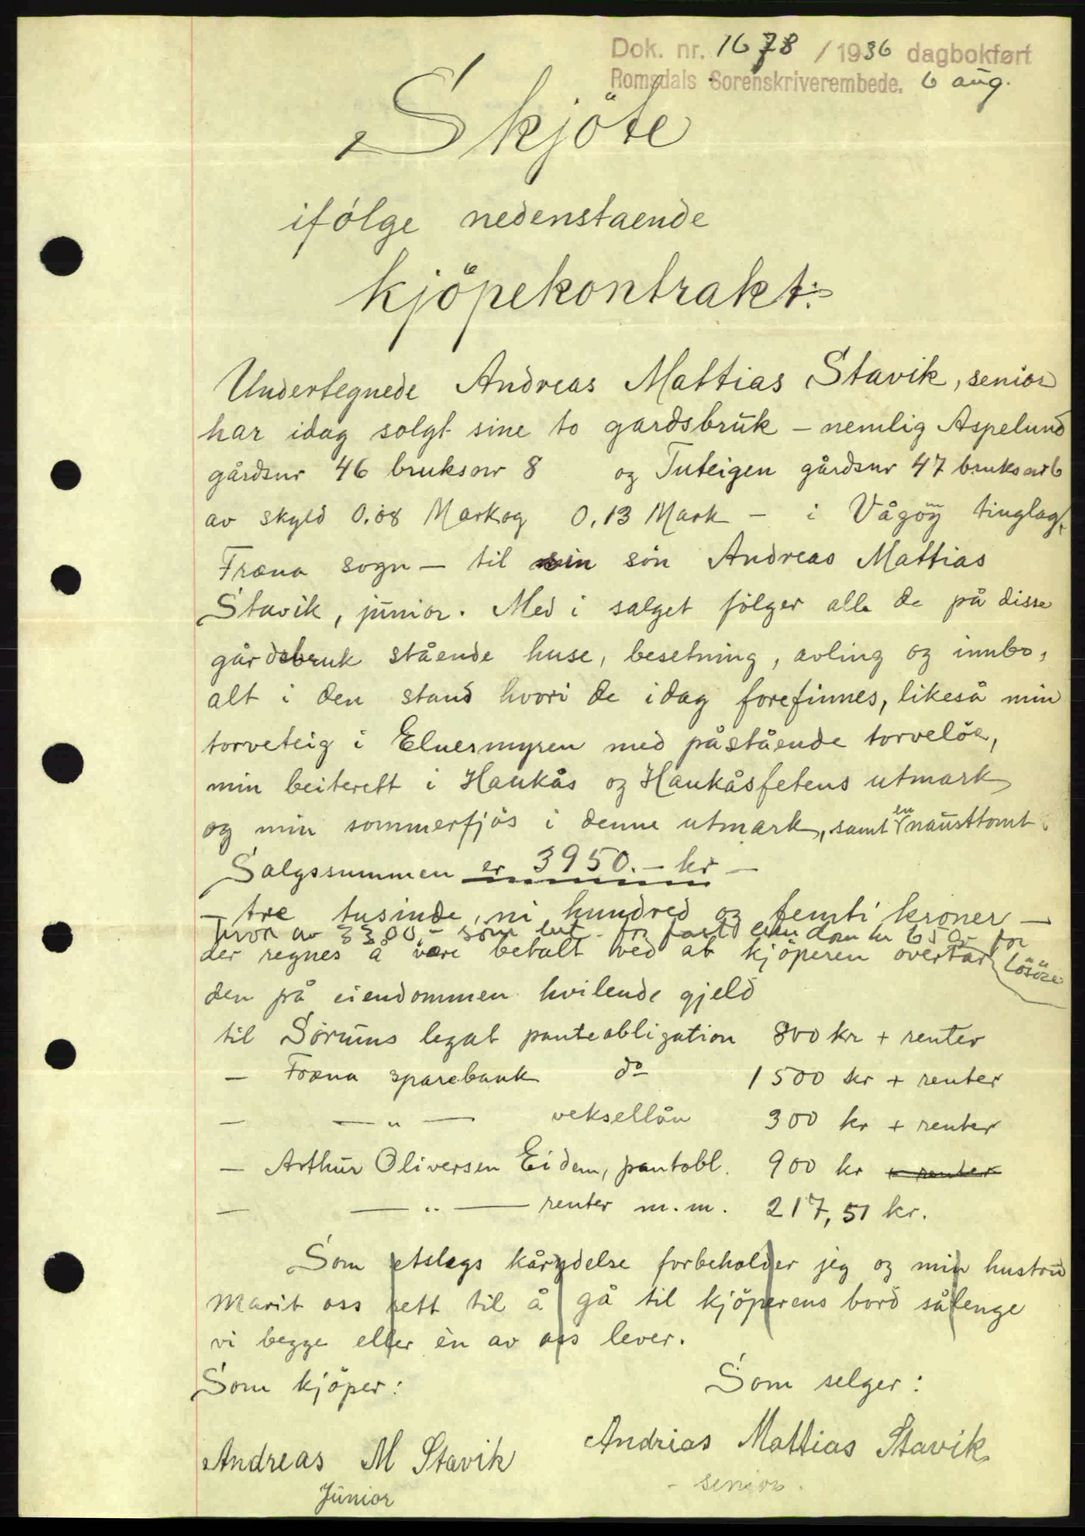 Dok. nr. 1678 / 1936 dagbokført
Romsdals Sorenskriverembede. 6 aug.
Skjöte
ifölge nedenstaende
kjöpekontrakt:
Undertegnede Andreas Mattias Stavik, senior
har idag solgt sine to gardsbruk - nemlig Aspelund
gårdsnr 46 bruksnr 8 og Tuteigen gårdsnr 47 bruksnr 6
av skyld 0,08 Mark og 0,13 Mark - i Vågöy tinglag,
Fræna sogn - til sin sön Andreas Mattias
Stavik, junior. Med i salget fölger alle de på disse
gårdsbruk stående huse, besetning, avling og innbo,
alt i den stand hvori de idag forefinnes, likeså min
torveteig i Elnesmyren med påstående torvelöe,
min beiterett i Haukås og Haukåsfetens utmark
og min sommerfjös i denne utmark, samt en nausttomt.
Salgssummen er 3950.- kr -
- tre tusinde, ni hundred og femti kroner -
hvor av 3300 - som for fast eiendom kr 650,- for
der regnes å være betalt ved at kjöperen overtar lösöre
den på eiendommen hvilende gjeld
til Sörums legat panteobligation 800 kr + renter
- Fræna sparebank do 1500 kr + renter
- — " — veksellån 300 kr + renter
- Arthur Oliversen Eidem, pantobl. 900 kr + renter
- — " — renter m.m. 217,51 kr.
Som etslags kårydelse forbeholder jeg og min hustru
Marit oss rett til å gå til kjöperens bord sålenge
vi begge eller én av oss lever.
Som kjöper: Som selger:
Andreas M Stavik Andrias Mattias Stavik
Junior - senior.